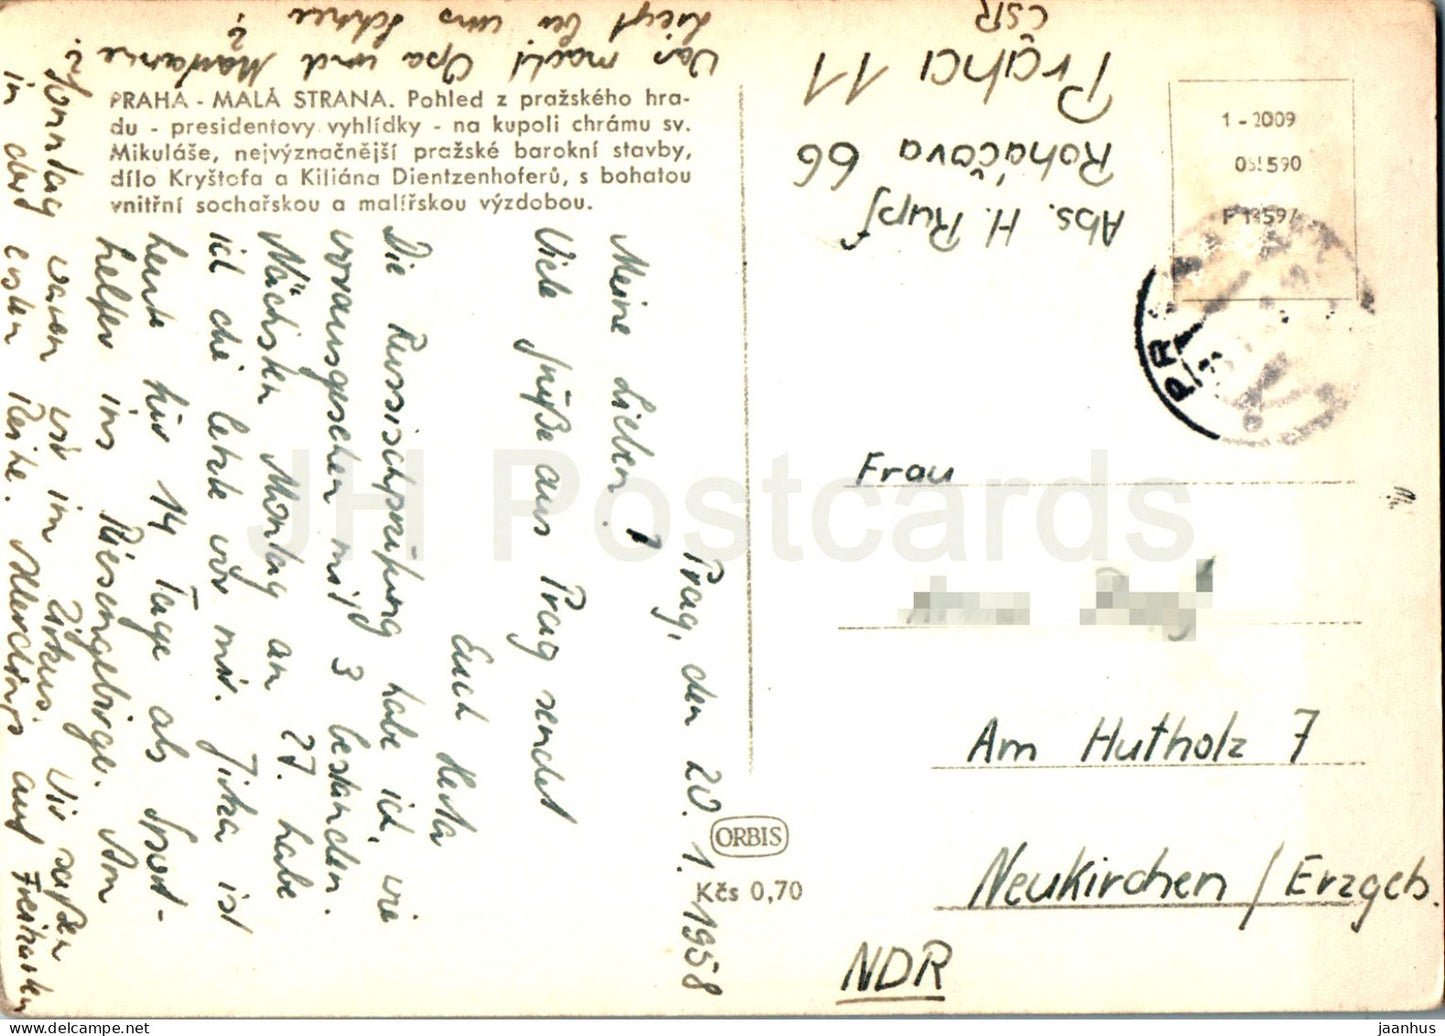 PRAHA - MALÁ STRANA. Pohled z pražského hra-
du - presidentovy vyhlídky - na kupoli chrámu sv.
Mikuláše, nejvýznačnější pražské barokní stavby,
dílo Kryštofa a Kiliána Dientzenhoferů, s bohatou
vnitřní sochařskou a malířskou výzdobou.
Prag, den 20. 1. 1958
Meine Lieben!
Viele Grüße aus Prag sendet
Euch Herta
Die Russischprüfung habe ich, wie
vorausgesehen mit 3 bestanden.
Nächsten Montag an 27. habe
ich die letzte vor mir. Jitka ist
heute für 14 Tage als Sport-
helfer ins Riesengebirge. Am
Sonntag waren wir im Zirkus. Wir saßen
in der ersten Reihe. Allerdings auf Freikarten
Was macht Opa und Marianne?
Liegt bei uns Schnee?
Abs. H. Rupf
Roháčova 66
Praha 11
ČSR
1 - 2009
P 13597
PR
Frau
Am Hutholz 7
Neukirchen / Erzgeb.
NDR
ORBIS
Kčs 0,70
JH Postcards
jaanhus @ delcampe.net